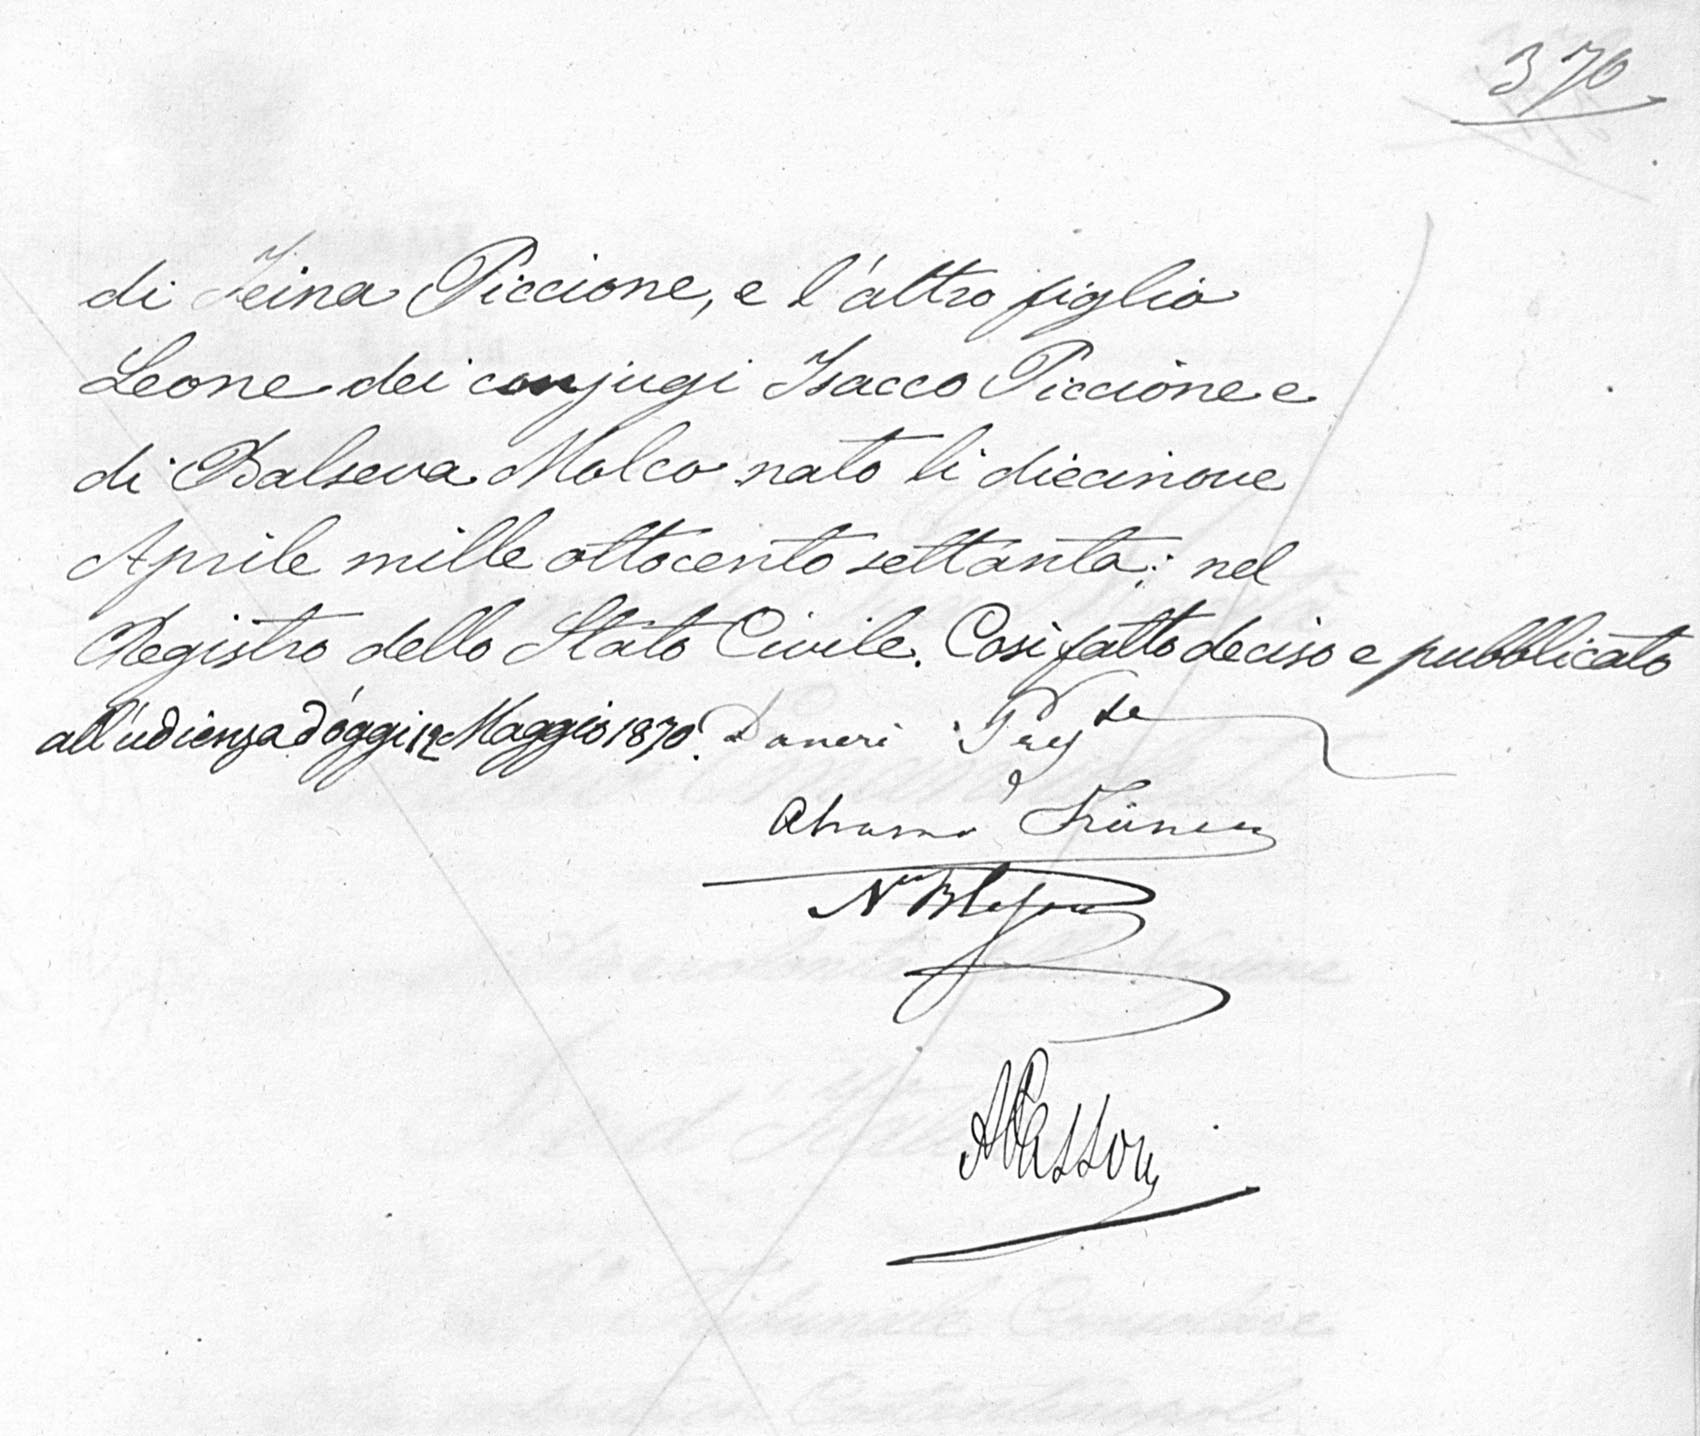 370
di Feina Piccione, e l'altro figlio
Leone dei conjugi Isacco Piccione e
di Balseva Molco nato li diecinove
Aprile mille ottocento settanta; nel
Registro dello Stato Civile. Così fatto deciso e pubblicato
all'udienza d'oggi 12 Maggio 1870. Daneri Pres^te